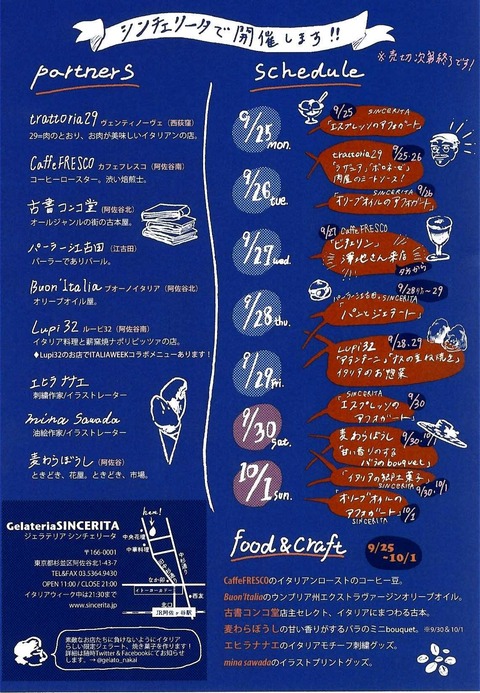 シンチェリータで開催します!!
※売切次第終了です!
partners
trattoria29 ヴェンティノーヴェ(西荻窪)
29=肉のとおり、お肉が美味しいイタリアンの店。
CaffeFRESCO カフェフレスコ(阿佐谷南)
コーヒーロースター。渋い焙煎士。
古書コンコ堂(阿佐谷北)
オールジャンルの街の古本屋。
パーラー江古田(江古田)
パーラーでありバール。
Buon'Italia ブオーノイタリア(阿佐谷北)
オリーブオイル屋。
Lupi 32 ルーピ32(阿佐谷南)
イタリア料理と薪窯焼ナポリピッツァの店。
♦Lupi32のお店でITALIAWEEKコラボメニューあります!
エヒラナナエ
刺繍作家/イラストレーター
mina sawada
油絵作家/イラストレーター
麦わらぼうし(阿佐谷)
ときどき、花屋。ときどき、市場。
schedule
9/25 mon.
9/25 SINCERITA
「エスプレッソのアフォガート」
trattoria29 9/25・26
「ラザニア」「ボロネーゼ」
肉屋のミートソース!
9/26 tue.
SINCERITA 9/26
「オリーブオイルのアフォガート」
9/27 wed.
9/27 CaffeFRESCO
9/28 thu.
パーラー江古田×SINCERITA
「パンとジェラート」
9/29 Fri.
Lupi32 9/28.29
イタリアのお惣菜
9/30 Sat.
SINCERITA 9/30
「エスプレッソの
アフォガート」
麦わらぼうし 9/30・10/1
「甘い香りのする
バラのbouquet」
10/1 Sun.
「イタリアの郷土菓子」
SINCERITA 9/30.10/1
「オリーブオイルの
アフォガート」10/1
SINCERITA
GelateriaSINCERITA
ジェラテリア シンチェリータ
〒166-0001
東京都杉並区阿佐谷北1-43-7
TEL&FAX 03.5364.9430
OPEN 11:00 / CLOSE 21:00
イタリアウィーク中は21:30まで
www.sincerita.jp
here!
中央花壇
中華料理
中杉通り
イトーヨーカドー
西友
北口
JR阿佐ヶ谷駅
素敵なお店たちに負けないようにイタリア
らしい限定ジェラート、焼き菓子を作ります!
詳細は随時Twitter & Facebookにてお知らせ
します。→@gelato_nakai
food & craft
9/25
~10/1
CaffeFRESCOのイタリアンローストのコーヒー豆。
Buon'Italiaのウンブリア州エクストラヴァージンオリーブオイル。
古書コンコ堂店主セレクト、イタリアにまつわる古本。
麦わらぼうしの甘い香りがするバラのミニbouquet。※9/30&10/1
エヒラナナエのイタリアモチーフ刺繍グッズ。
mina sawadaのイラストプリントグッズ。